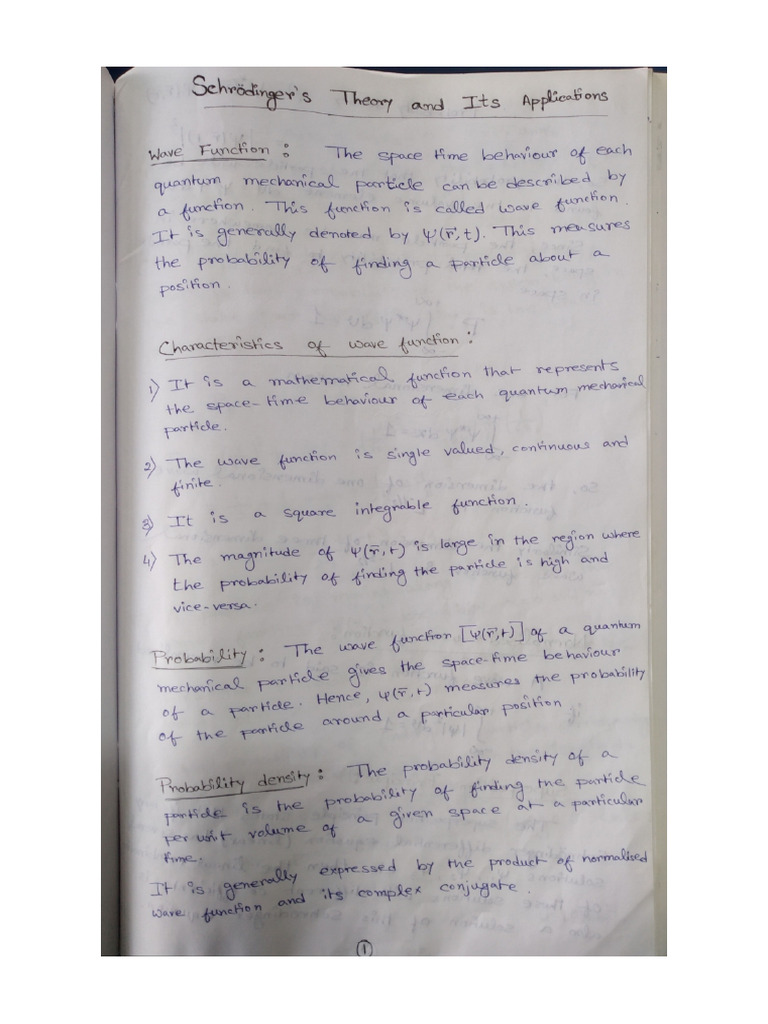 Schrödinger's Theory and Its Applications
Wave Function : The space time behaviour of each
quantum mechanical particle can be described by
a function. This function is called wave function.
It is generally denoted by ψ(r̄,t). This measures
the probability of finding a particle about a
position.
Characteristics of wave function :
1) It is a mathematical function that represents
the space-time behaviour of each quantum mechanical
particle.
2) The wave function is single valued, continuous and
finite.
3) It is a square integrable function.
4) The magnitude of ψ(r̄,t) is large in the region where
the probability of finding the particle is high and
vice-versa.
Probability : The wave function [ψ(r̄,t)] of a quantum
mechanical particle gives the space-time behaviour
of a particle. Hence, ψ(r̄,t) measures the probability
of the particle around a particular position
Probability density : The probability density of a
particle is the probability of finding the particle
per unit volume of a given space at a particular
time.
It is generally expressed by the product of normalised
wave function and its complex conjugate.
1